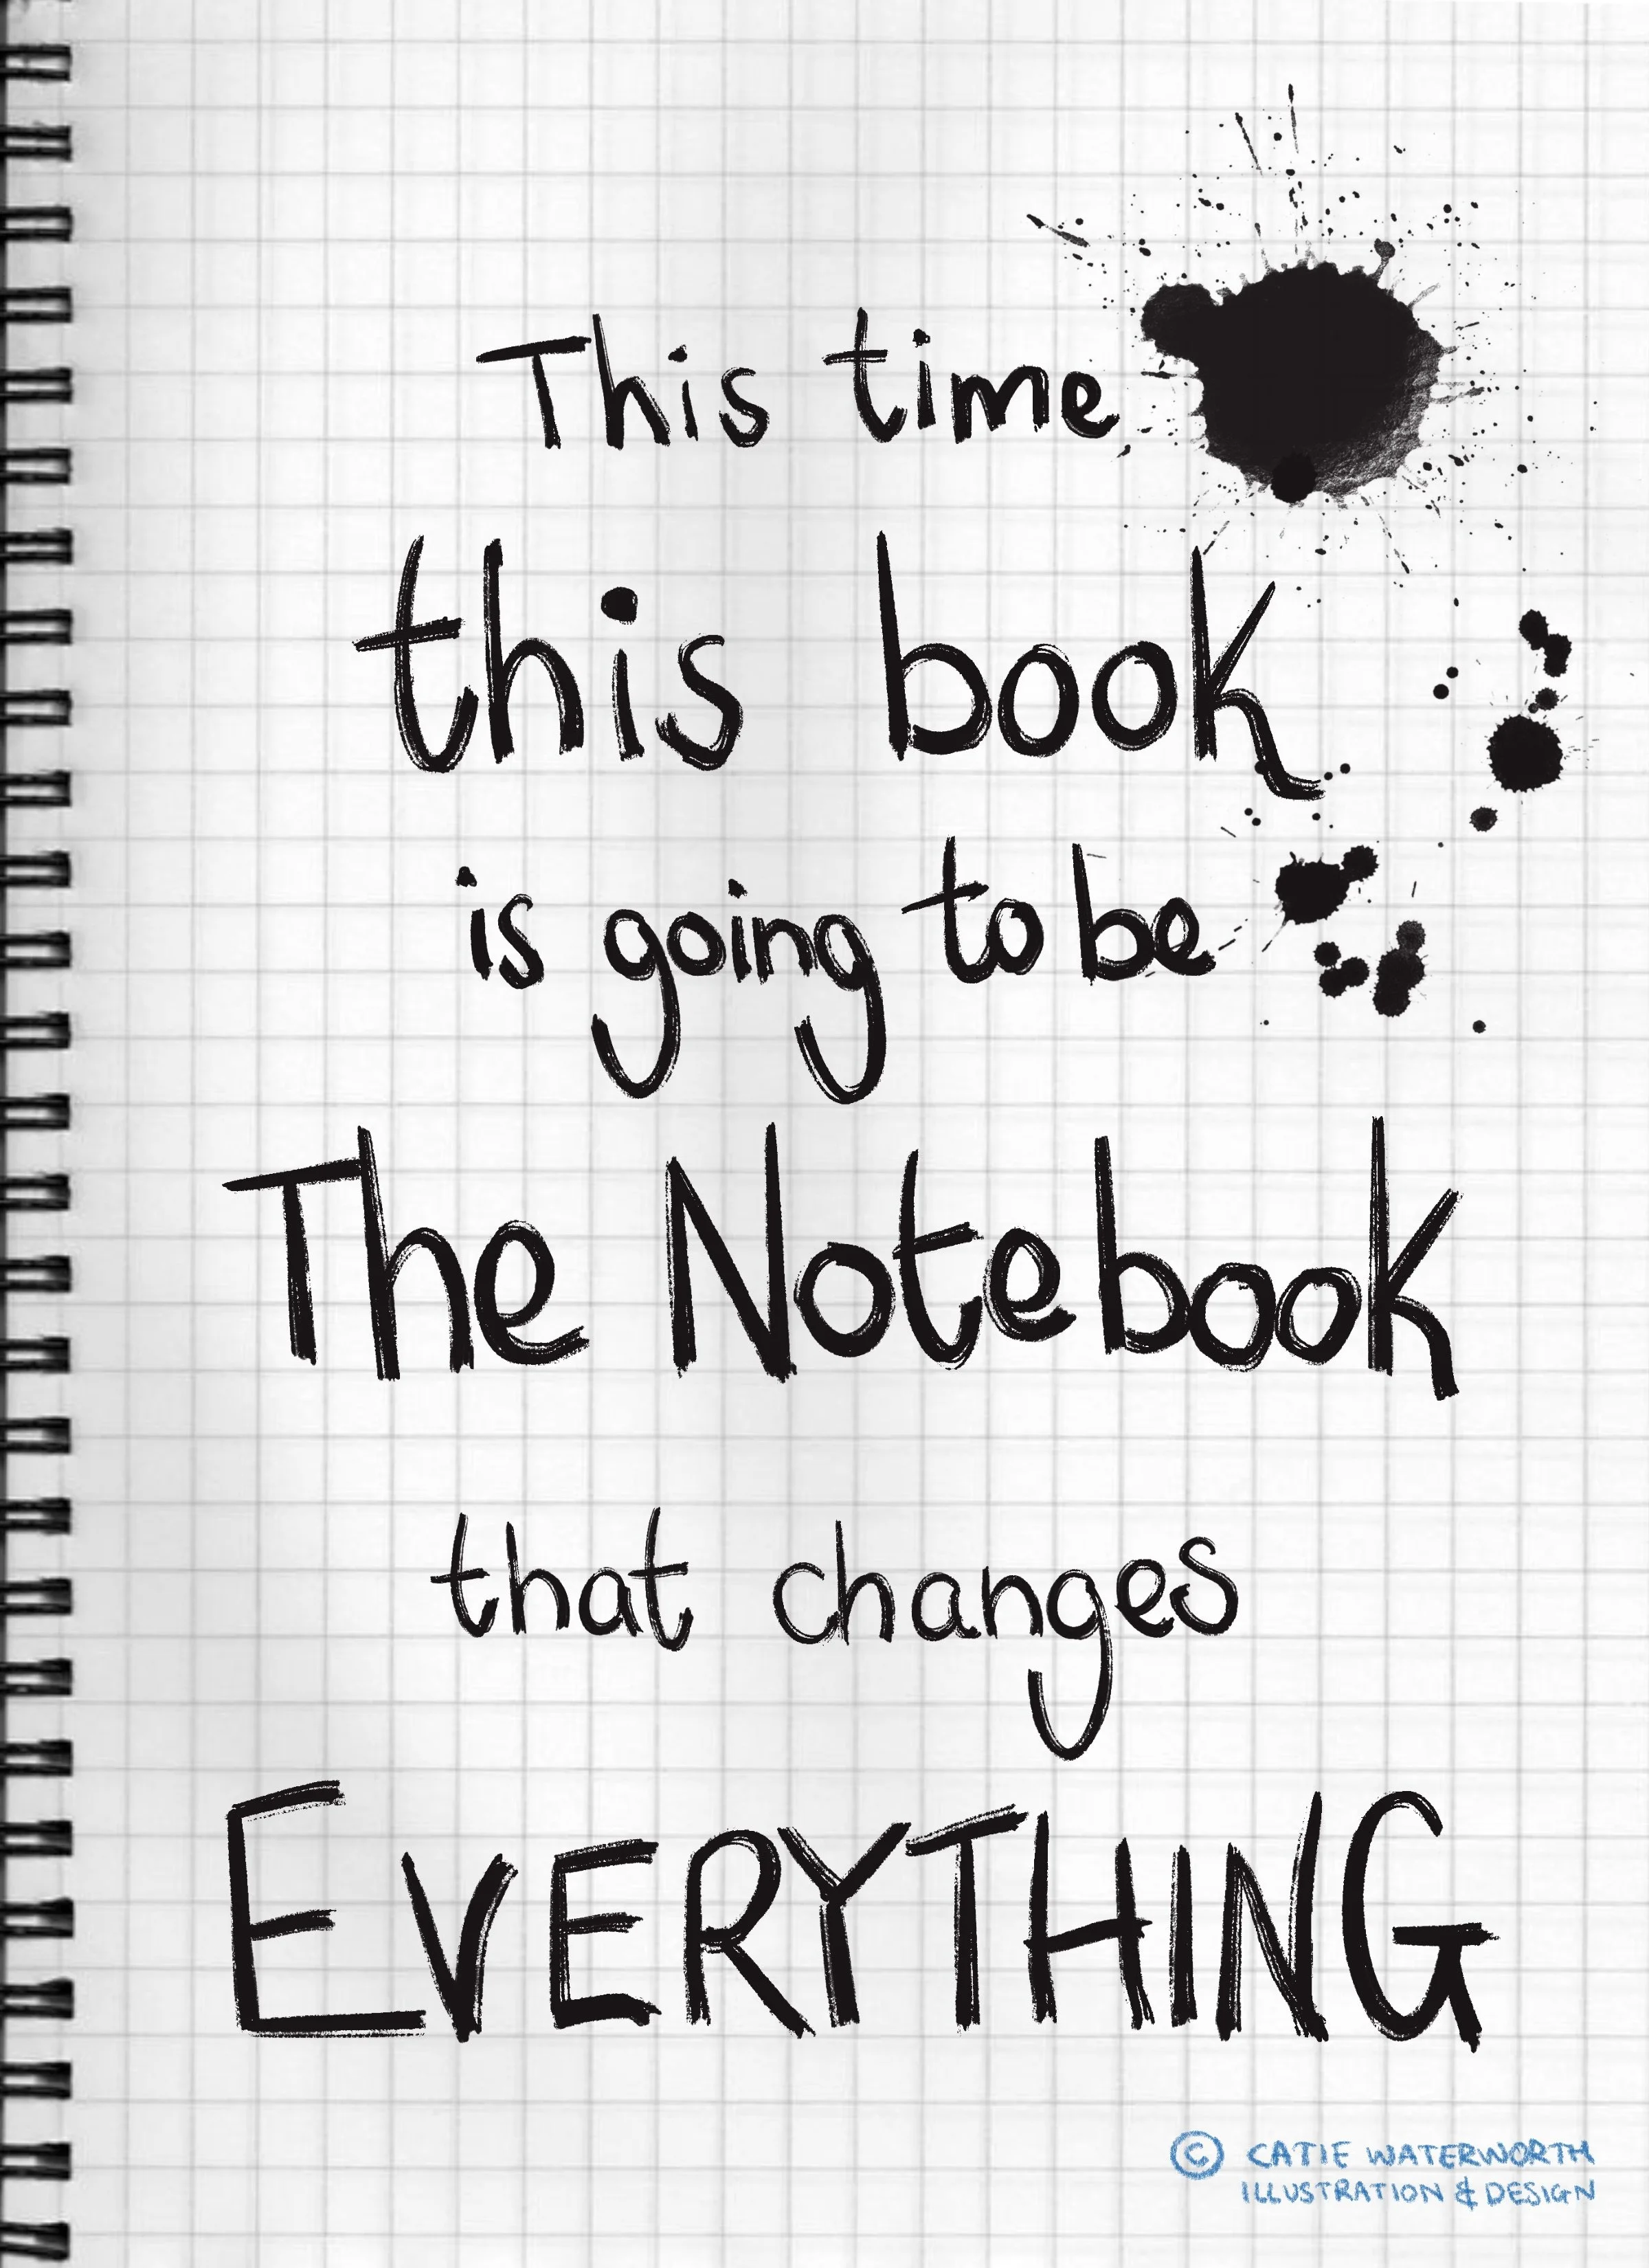 This time
this book
is going to be
The Notebook
that changes
EVERYTHING
© CATIE WATERWORTH
ILLUSTRATION & DESIGN